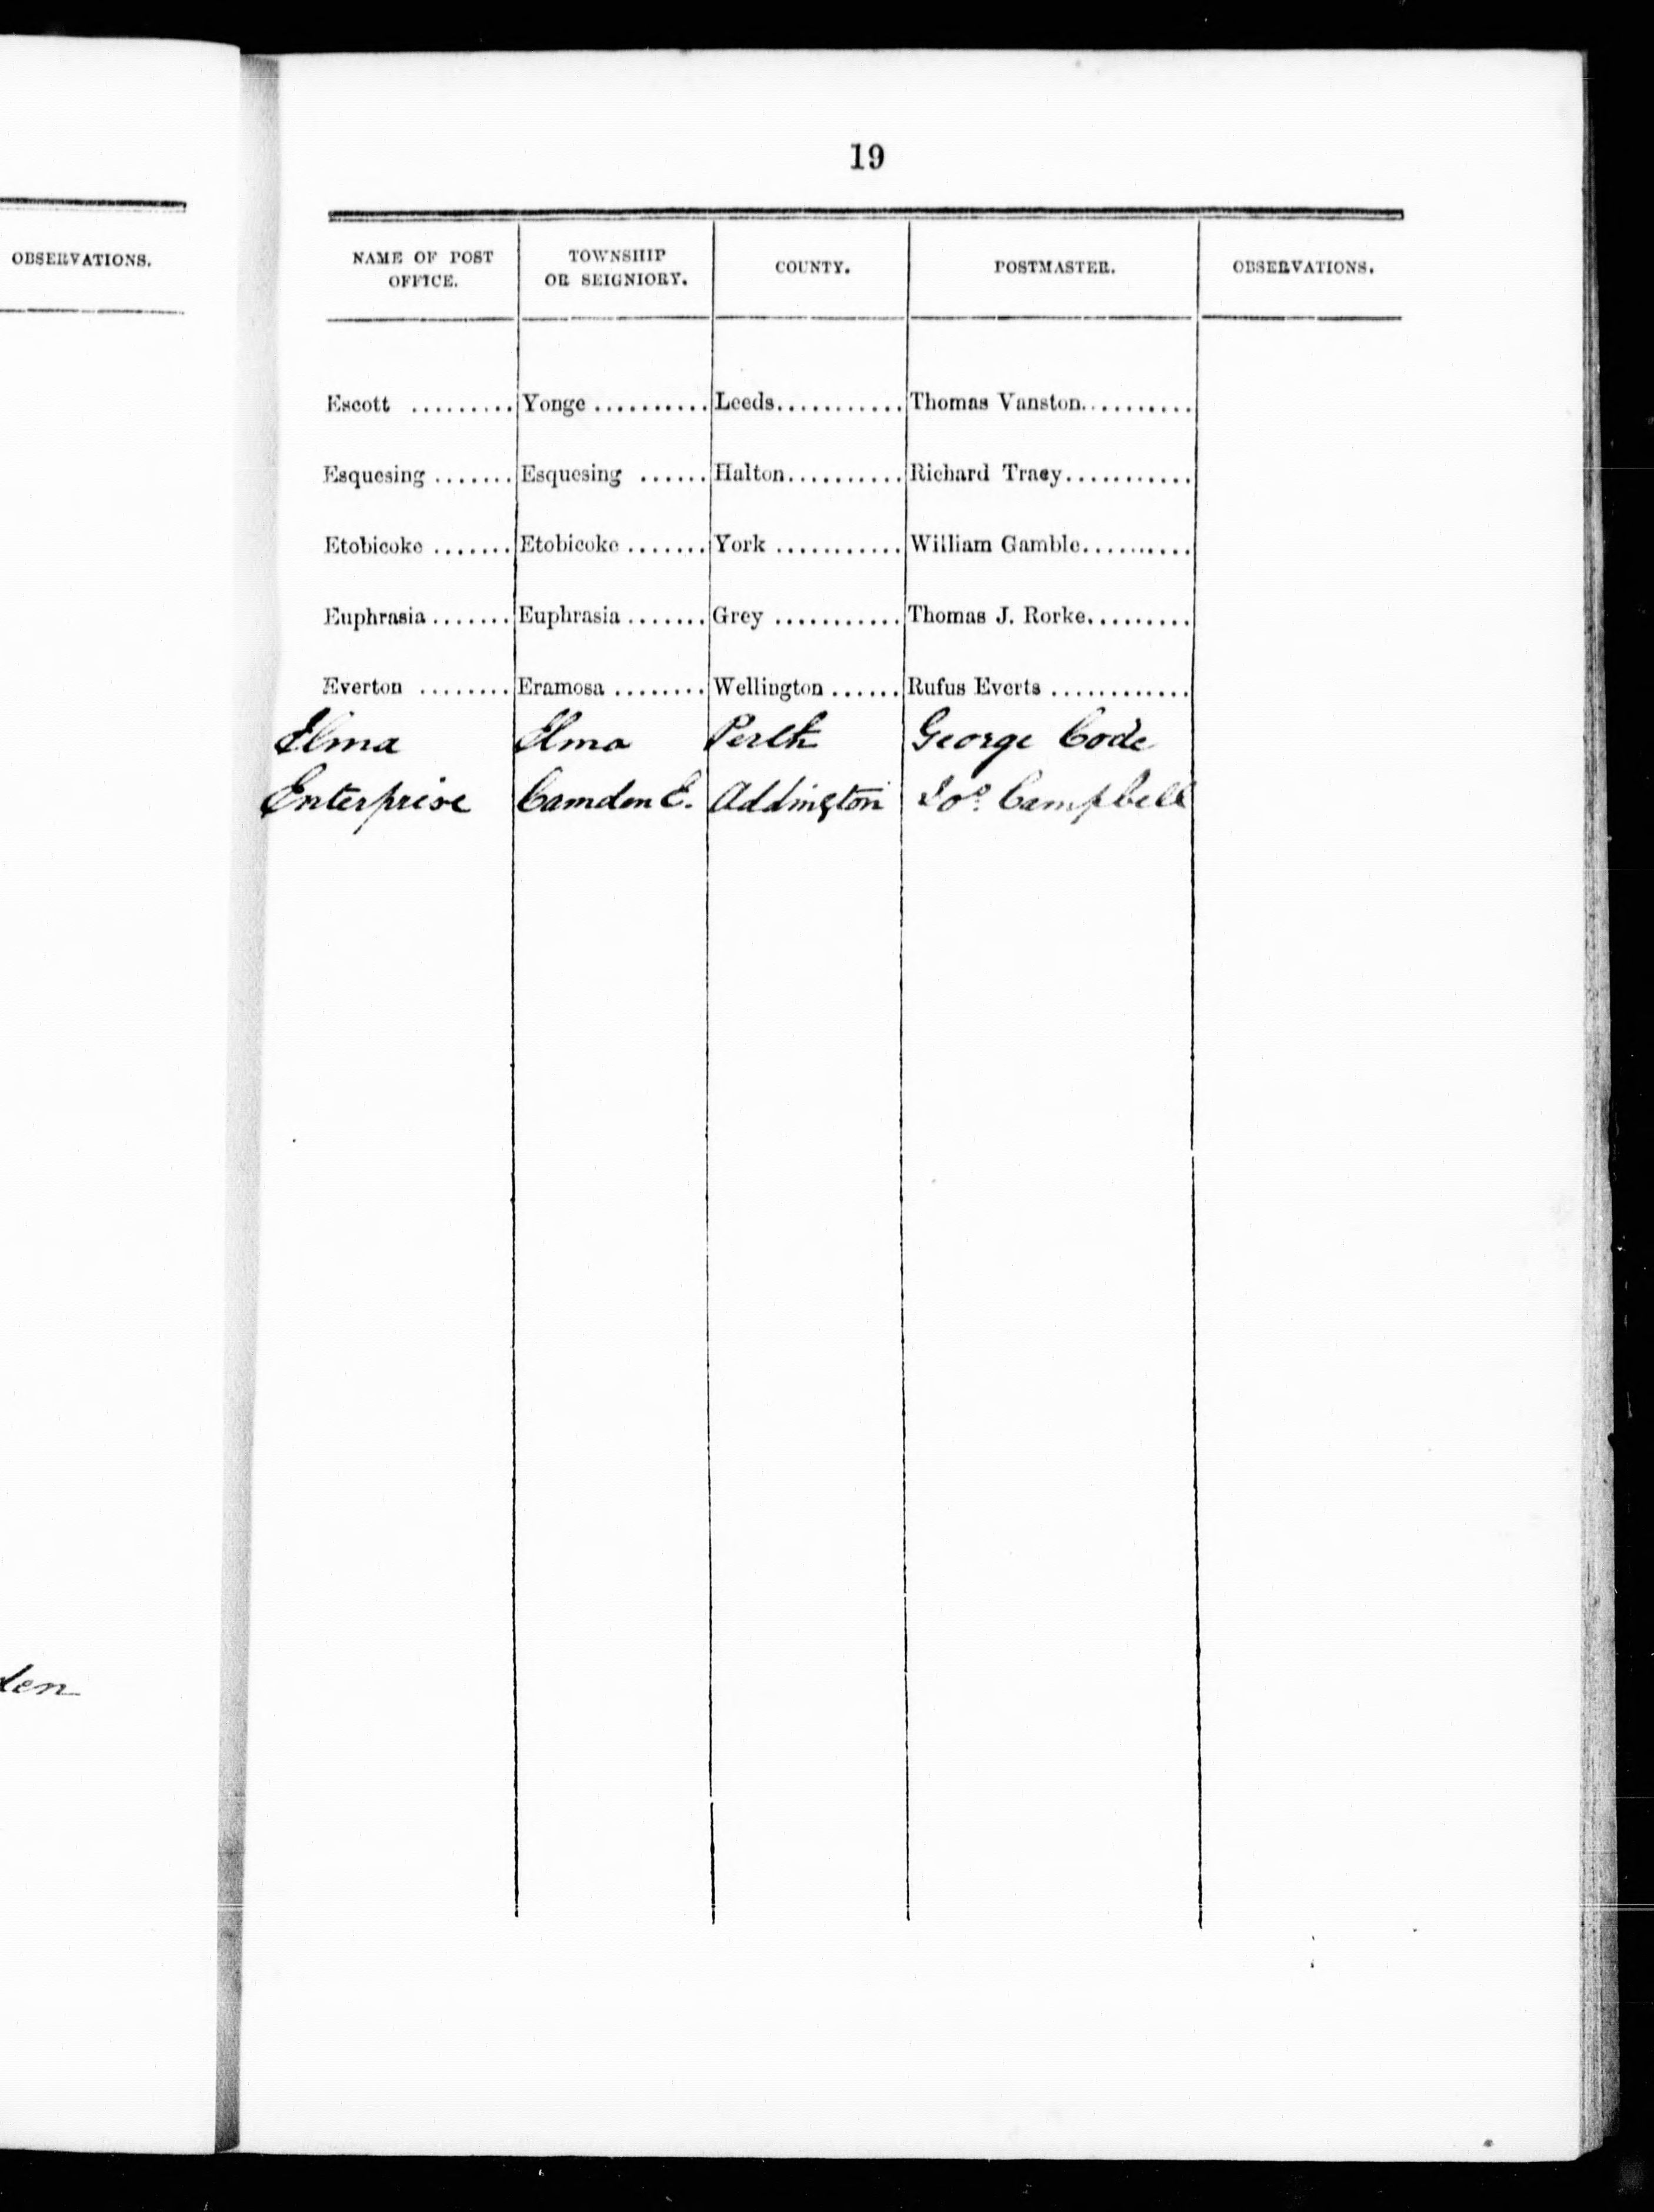 OBSERVATIONS.
den
19
NAME OF POST OFFICE. TOWNSHIP OR SEIGNIORY. COUNTY. POSTMASTER. OBSERVATIONS.
Escott ......... Yonge .......... Leeds........... Thomas Vanston..........
Esquesing ....... Esquesing ...... Halton.......... Richard Tracy...........
Etobicoke ....... Etobicoke ....... York ........... William Gamble..........
Euphrasia ....... Euphrasia ....... Grey ........... Thomas J. Rorke.........
Everton ........ Eramosa ........ Wellington ...... Rufus Everts ............
Elma Elma Perth George Code
Enterprise Camden E. Addington Campbell